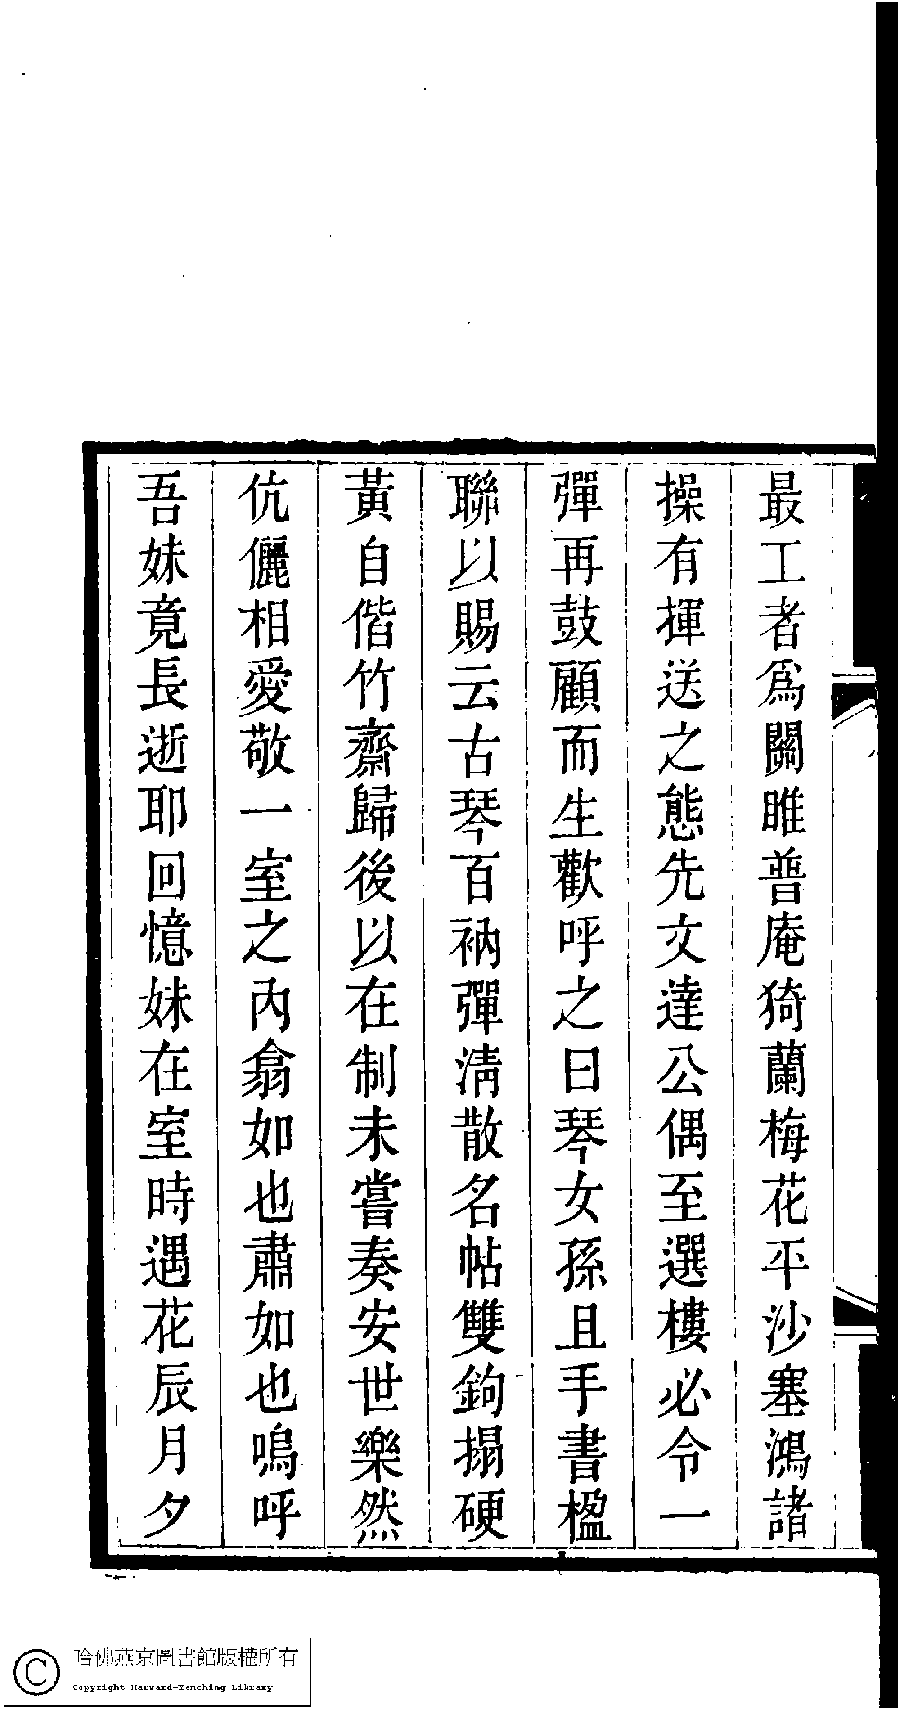 最工者爲關睢普庵猗蘭梅花平沙塞鴻諸
操有揮送之態先文達公偶至選樓必令一
彈再鼓顧而生歡呼之曰琴女孫且手書楹
聯以賜云古琴百衲彈淸散名帖雙鉤搨硬
黃自偕竹齋歸後以在制未嘗奏安世樂然
伉儷相愛敬一室之內翕如也肅如也嗚呼
吾妹竟長逝耶回憶妹在室時遇花辰月夕
哈佛燕京圖書館版權所有
Copyright Harvard-Yenching Library